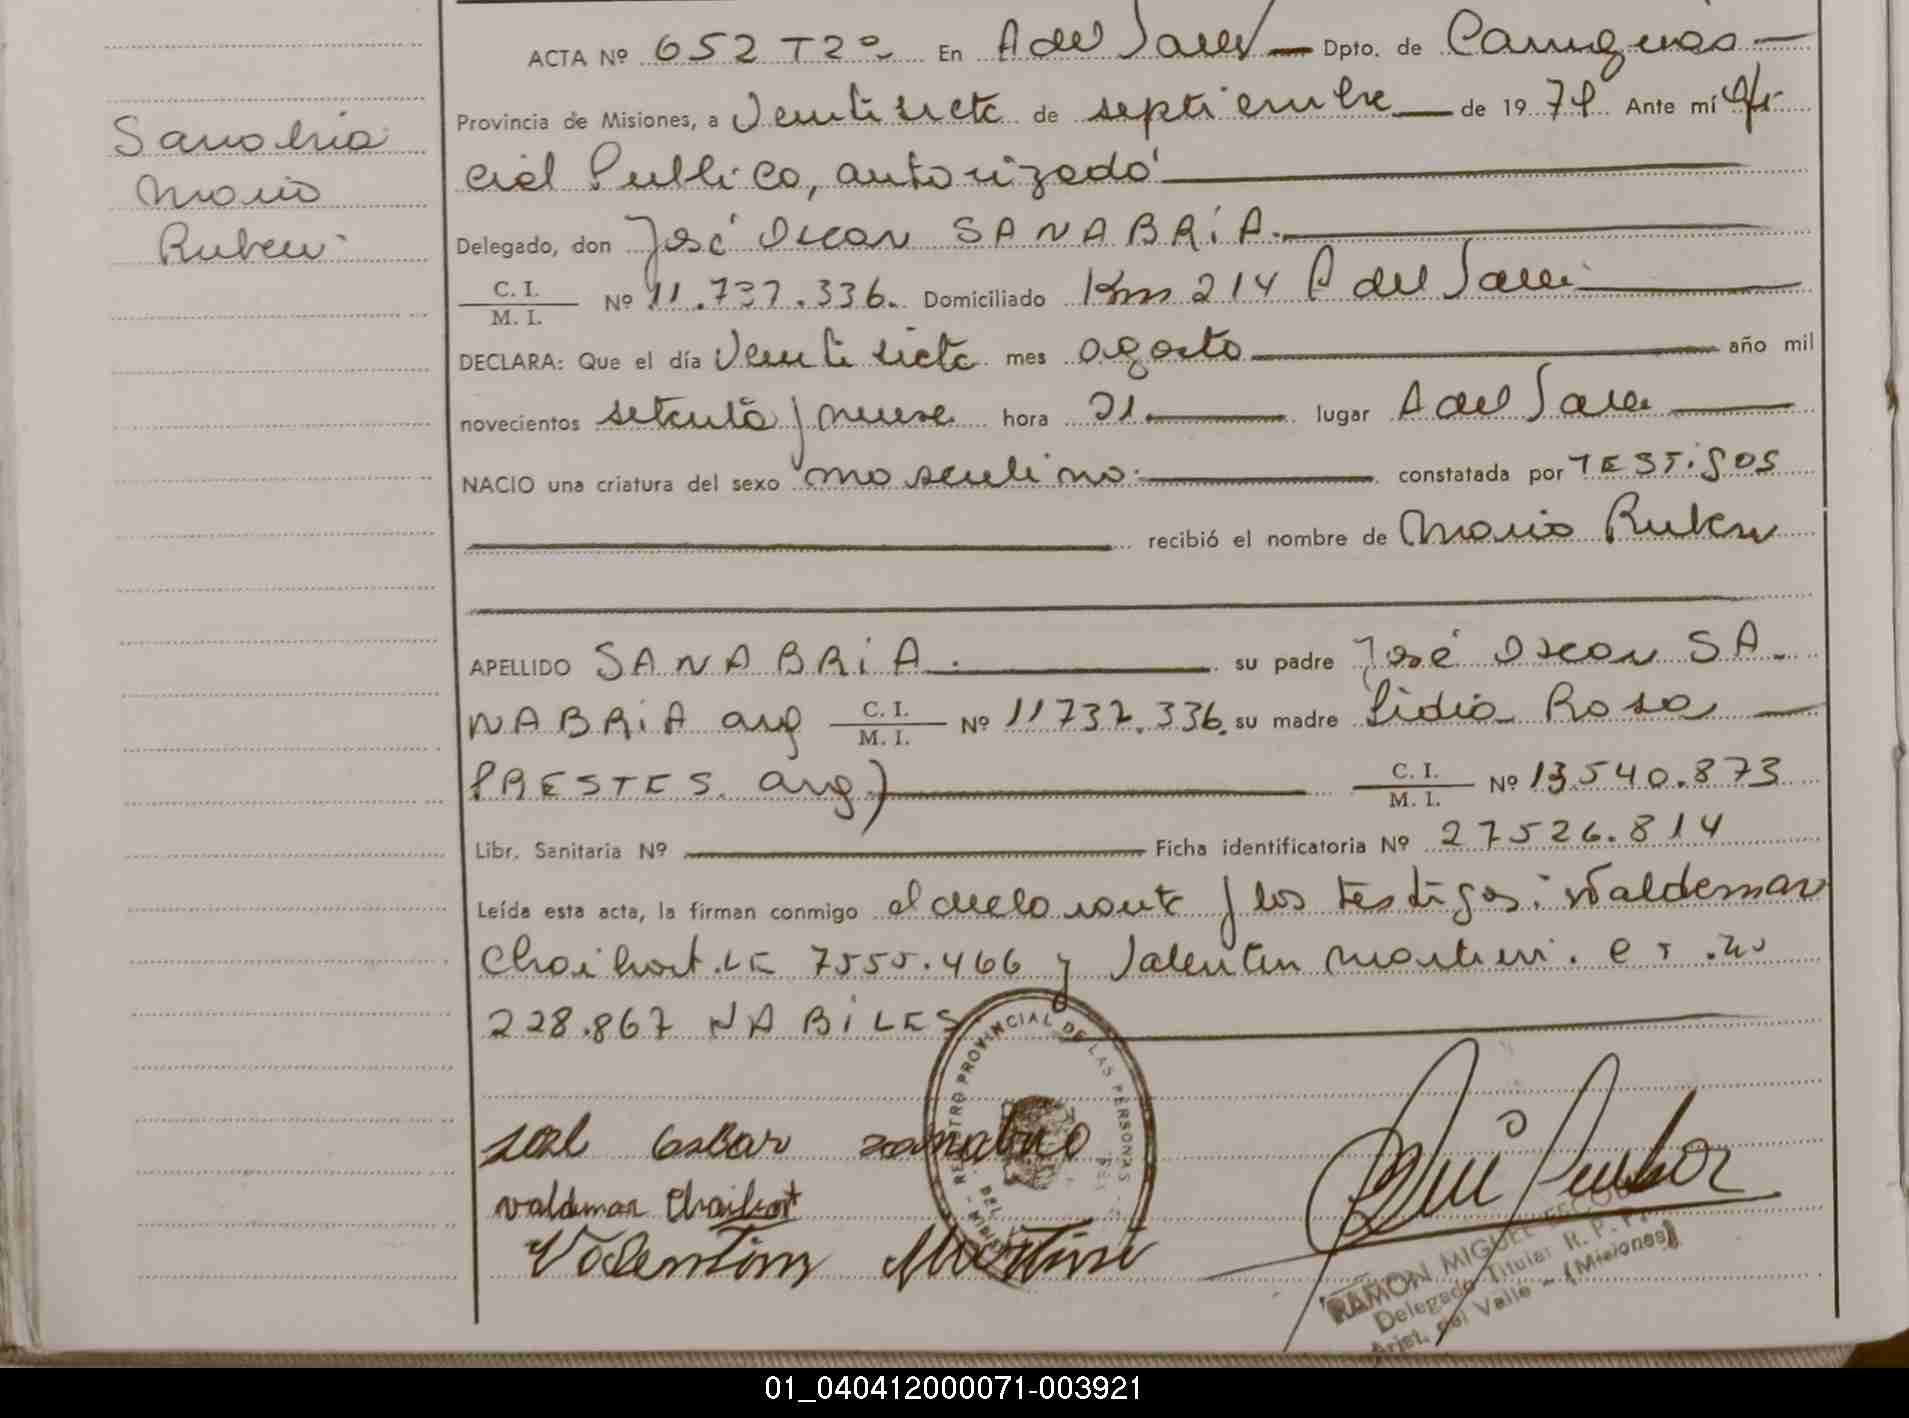 ACTA Nº 652 T2º En A del Valle Dpto. de Cainguas
Provincia de Misiones, a Veintisiete de septiembre de 1979 Ante mí Ofi
cial Publico, autorizado
Sanabria
Mario
Ruben
Delegado, don José Oscar SANABRIA.
C. I.
M. I. Nº 11.737.336. Domiciliado Km 214 A del Valle
DECLARA: Que el día Veintisiete mes agosto año mil
novecientos setenta y nueve hora 21 lugar A del Valle
NACIO una criatura del sexo masculino constatada por TESTIGOS
recibió el nombre de Mario Ruben
APELLIDO SANABRIA. su padre José Oscar SA
NABRIA arg C. I.
M. I. Nº 11737.336. su madre Lidia Rosa
PRESTES. arg) C. I.
M. I. Nº 13.540.873
Libr. Sanitaria Nº Ficha identificatoria Nº 27526.814
Leída esta acta, la firman conmigo el declarante y los testigos: Waldemar
Chaihort LE 7555.466 y Valentin Martini. C I
228.867 HABILES
REGISTRO PROVINCIAL DE LAS PERSONAS
Valdemar Chaihort
Valentim Martini
RAMON MIGUEL ESCOBAR
Delegado Titular R. P. P.
Arist. del Valle - (Misiones)
01_040412000071-003921